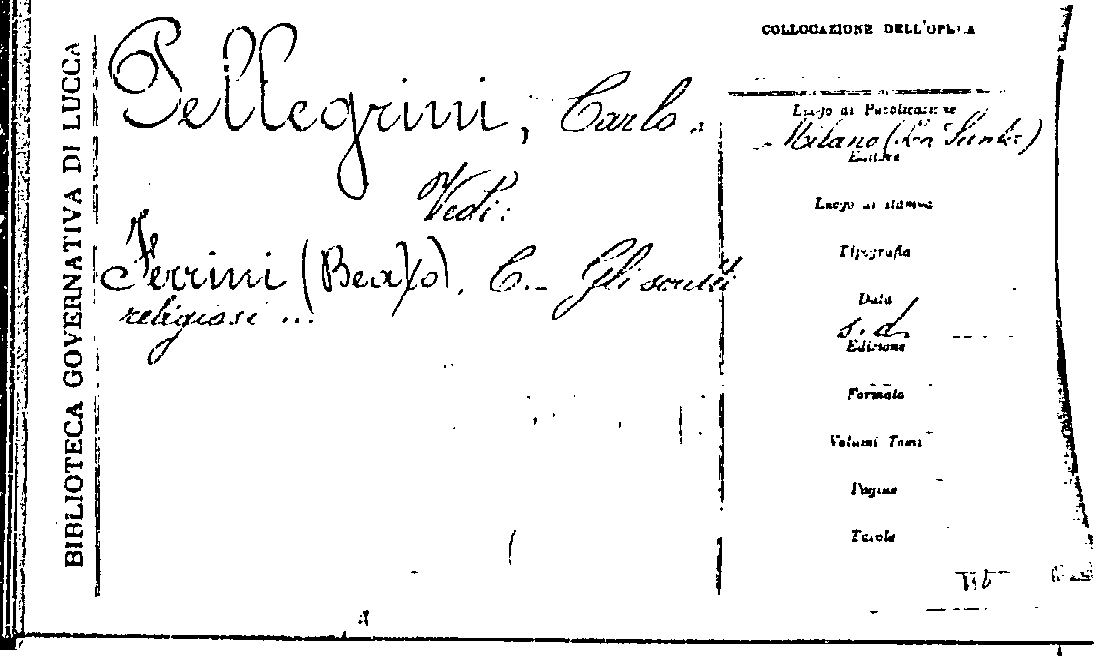 BIBLIOTECA GOVERNATIVA DI LUCCA
Pellegrini, Carlo.
Vedi:
Ferrini (Beato), C. - Gli scritti
religiosi ...
COLLOCAZIONE DELL'OPERA
Luogo di Pubblicazione
Milano
Editore
Luogo di stampa
Tipografia
Data
s.d.
Edizione
Formato
Volumi Tomi
Pagine
Tavole